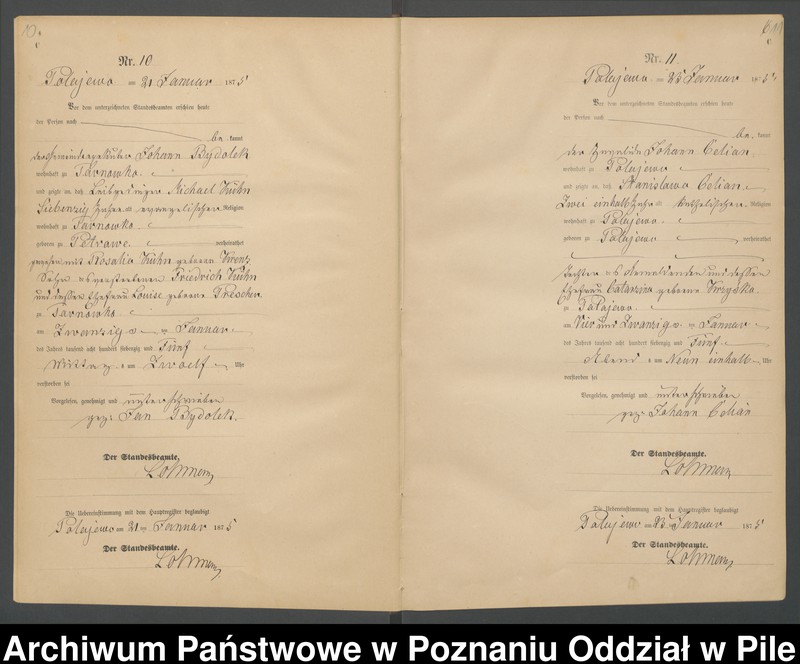 10.
C
Nr. 10
Polajewo am 21 Januar 1875
Vor dem unterzeichneten Standesbeamten erschien heute
der Person nach
be kannt
Johann Bydolek
wohnhaft zu Tarnowko.
und zeigte an, daß Leibgedinger Michael Kuhn
Siebenzig Jahre alt evangelischer Religion
wohnhaft zu Tarnowko.
geboren zu verheirathet
gewesen mit Rosalia Kuhn geborene
Sohn des verstorbenen Friedrich Kuhn
und dessen Ehefrau Louise geborene
zu Tarnowko.
am Zwanzigs ten Januar
des Jahres tausend acht hundert siebenzig und Fünf
Mittag s um Zwoelf Uhr
verstorben sei
Vorgelesen, genehmigt und unterschrieben
gez: Jan Bydolek.
Der Standesbeamte.
Die Uebereinstimmung mit dem Hauptregister beglaubigt
Polajewo am 21 ten Januar 1875
Der Standesbeamte.
11
C
Nr. 11.
Polajewo am 25 Januar 1875
Vor dem unterzeichneten Standesbeamten erschien heute
der Person nach
be kannt
der Johann Celian
wohnhaft zu Polajewo
und zeigte an, daß Stanislawa Celian
Zwei einhalb Jahr alt katholischer Religion
wohnhaft zu Polajewo
geboren zu Polajewo verheirathet
Tochter des Anmeldenden und dessen
Ehefrau Catarzina geborene
zu Polajewo
am Vier und Zwanzigs ten Januar
des Jahres tausend acht hundert siebenzig und Fünf
Abend s um Neun einhalb Uhr
verstorben sei
Vorgelesen, genehmigt und unterschrieben
gez: Johann Celian
Der Standesbeamte.
Die Uebereinstimmung mit dem Hauptregister beglaubigt
Polajewo am 25 Januar 1875
Der Standesbeamte.
Archiwum Państwowe w Poznaniu Oddział w Pile